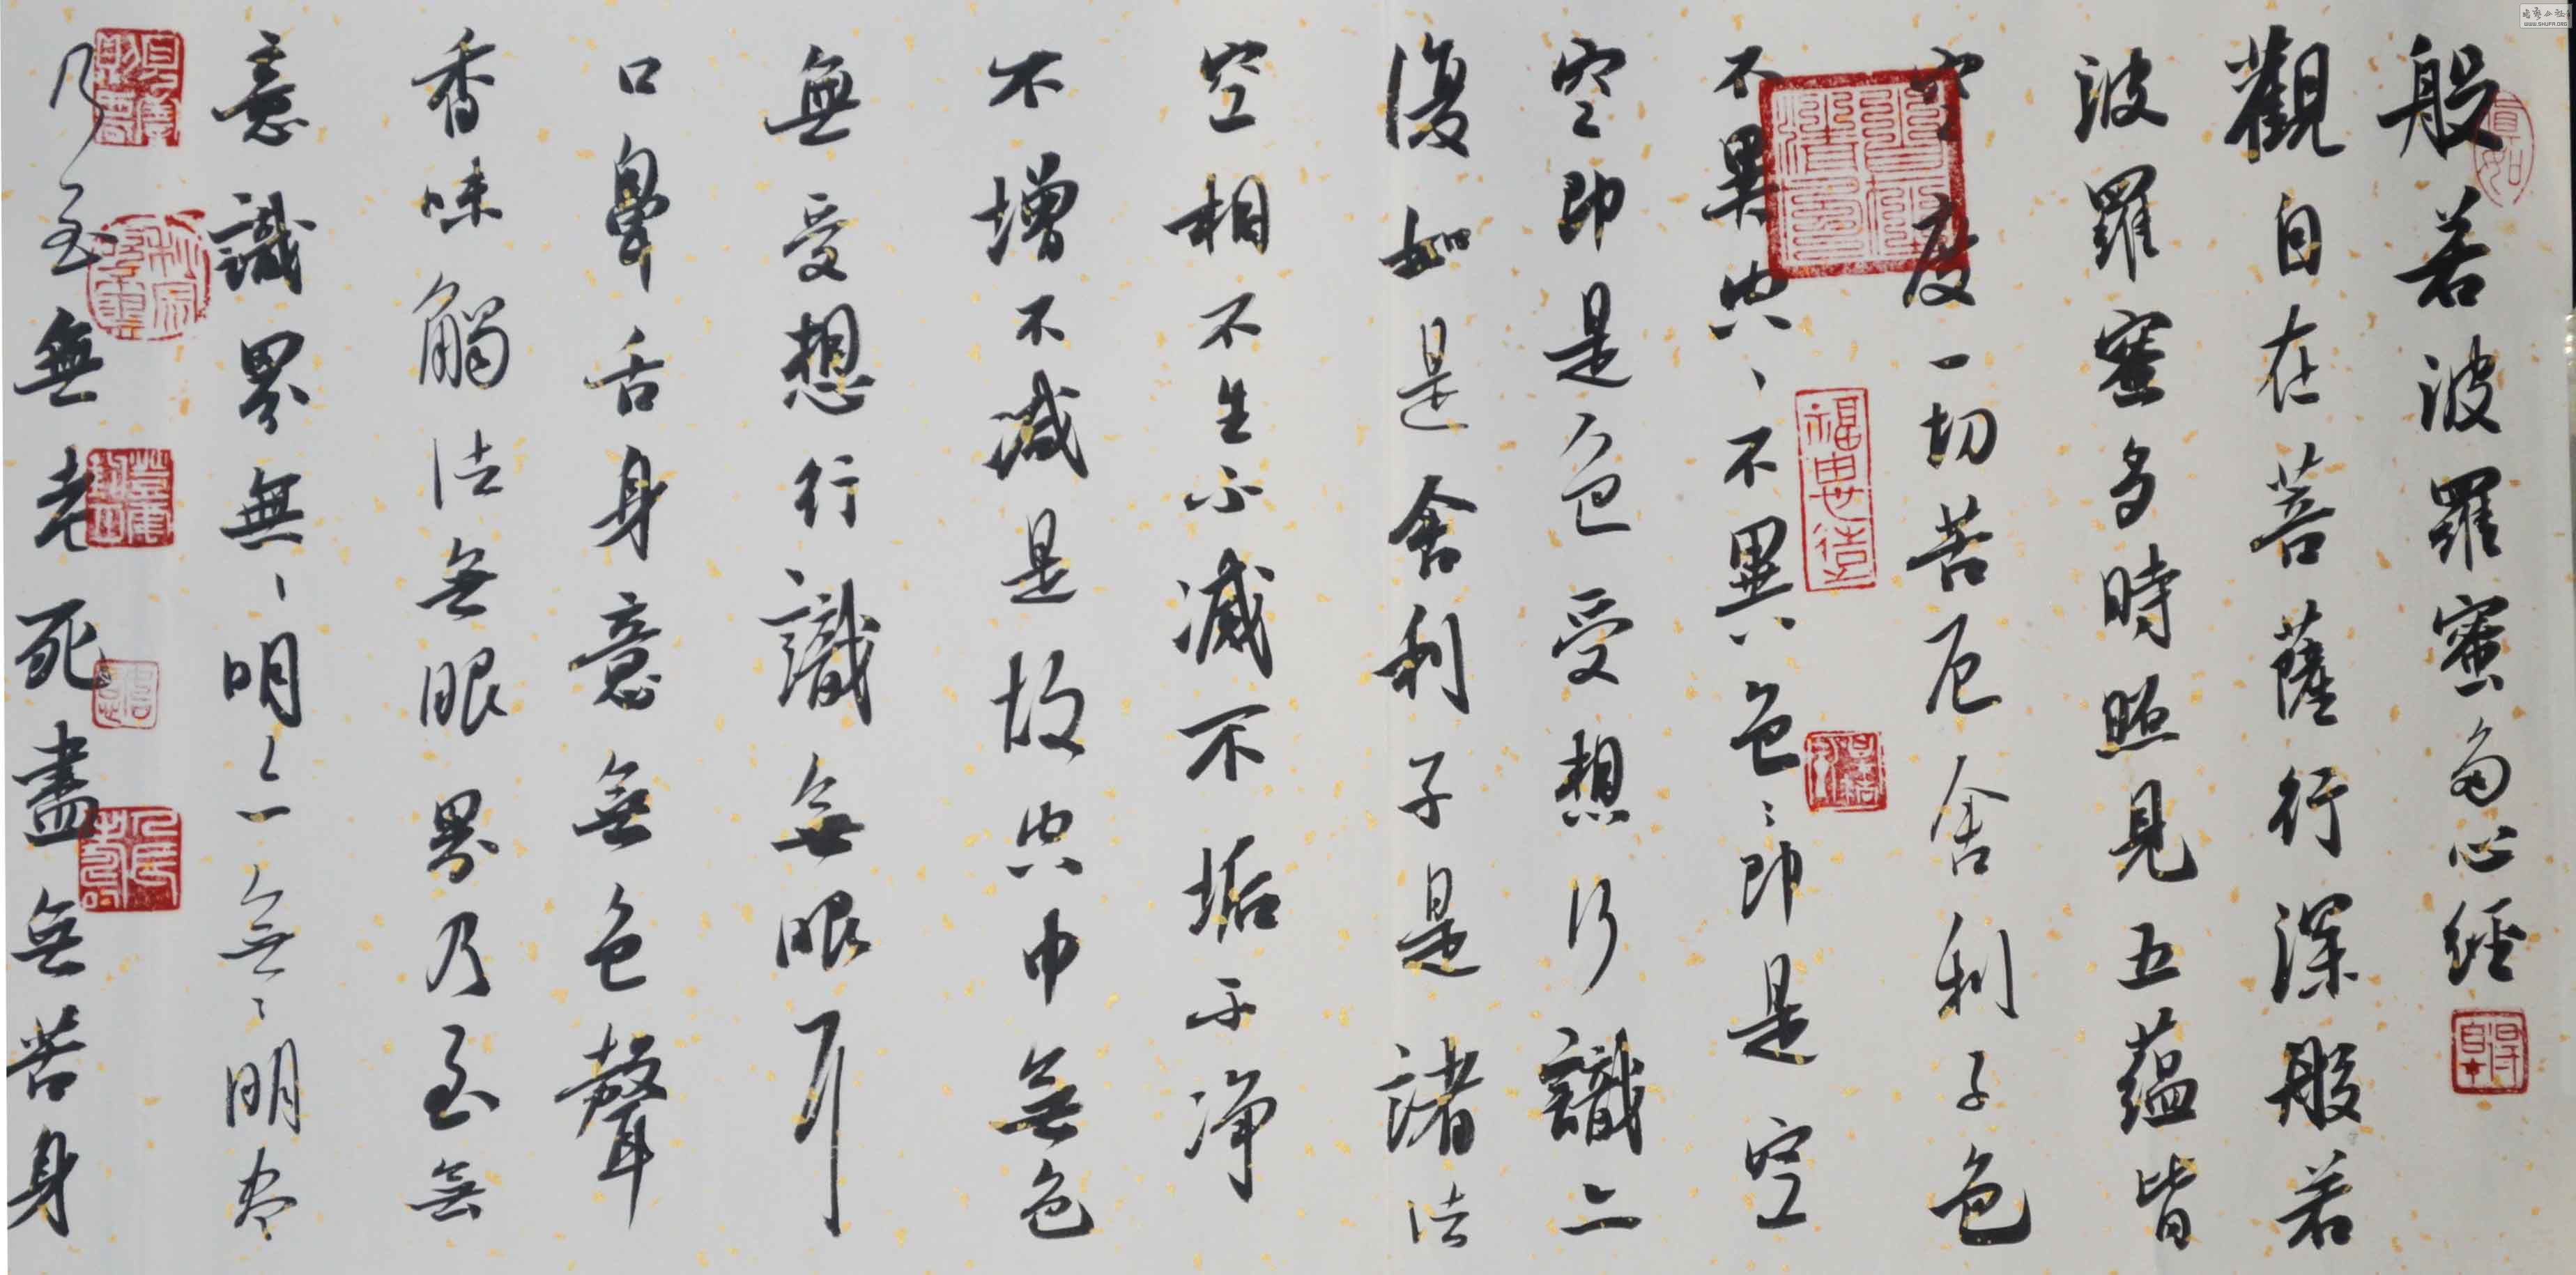 般若波羅蜜多心經
觀自在菩薩行深般若
波羅蜜多時照見五蘊皆
空度一切苦厄舍利子色
不異空〻不異色〻即是空
空即是色受想行識亦
復如是舍利子是諸法
空相不生不滅不垢不净
不增不減是故空中無色
無受想行識無眼耳
口鼻舌身意無色聲
香味觸法無眼界乃至無
意識界無〻明〻亦無〻明尽
乃至無老死盡無苦身
WWW.SHUFA.ORG